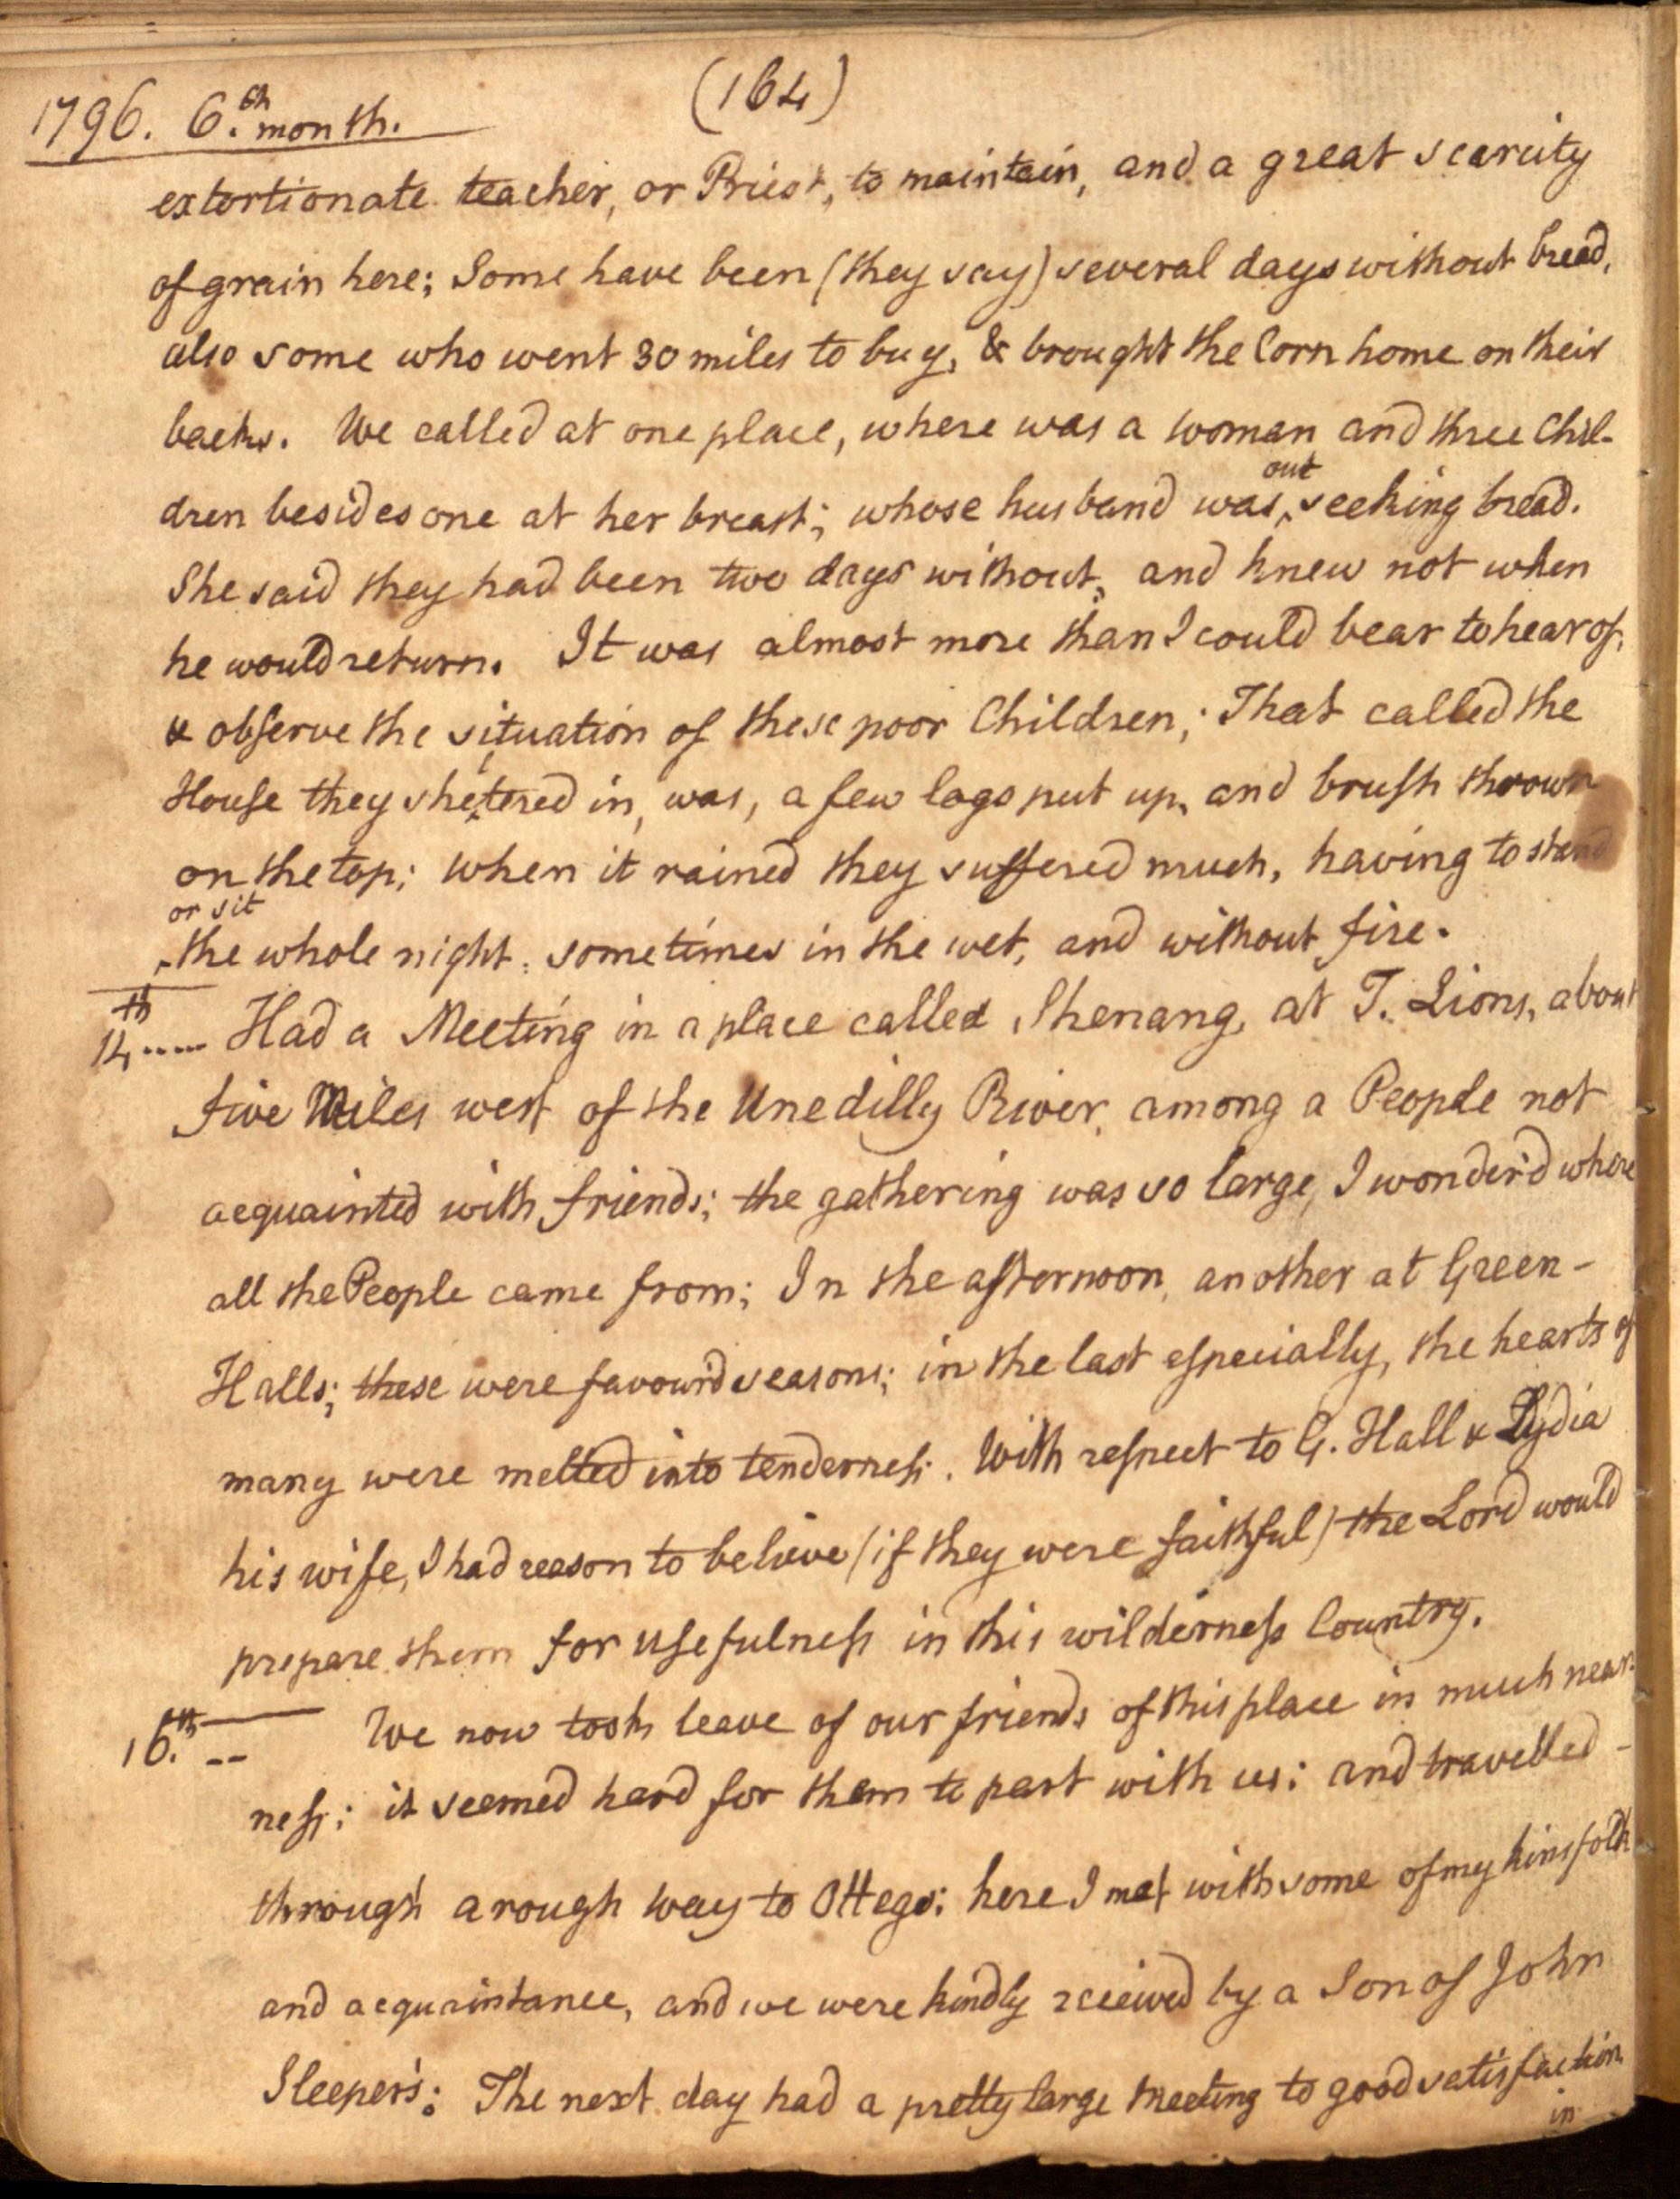 (164)
1796. 6.th month.
extortionate teacher, or Priest, to maintain, and a great scarcity
of grain here; Some have been (they say) several days without bread,
also some who went 30 miles to buy, & brought the Corn home on their
backs. We called at one place, where was a woman and three Chil-
dren besides one at her breast; whose husband was ^out seeking bread.
She said they had been two days without, and knew not when
he would return. It was almost more than I could bear to hear of,
& observe the situation of these poor Children; That called the
House they sheltered in, was, a few logs put up, and brush thrown
on the top; when it rained they suffered much, having to stand
^or sit the whole night, sometimes in the wet, and without fire.
14th ..... Had a Meeting in a place called Shenang, at T. Lions, about
five Miles west of the Unedilly River, among a People not
acquainted with friends; the gathering was so large, I wonder'd where
all the People came from; In the afternoon, another at Green-
Halls; these were favour'd seasons; in the last especially, the hearts of
many were melted into tenderness. With respect to G. Hall & Lydia
his wife, I had reason to believe (if they were faithful) the Lord would
prepare them for usefulness in this wilderness Country.
16.th -- We now took leave of our friends of this place in much near-
ness; it seemed hard for them to part with us: and travelled -
through a rough way to Ottego; here I met with some of my kinsfolk
and acquaintance, and we were kindly received by a Son of John
Sleeper's: The next day had a pretty large Meeting to good satisfaction
in